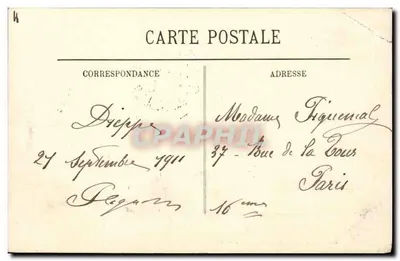 CARTE POSTALE
CORRESPONDANCE
Dieppe
27 Septembre 1911
ADRESSE
Madame
37 - Rue de la Tour
Paris
16ème
CPAPHIL